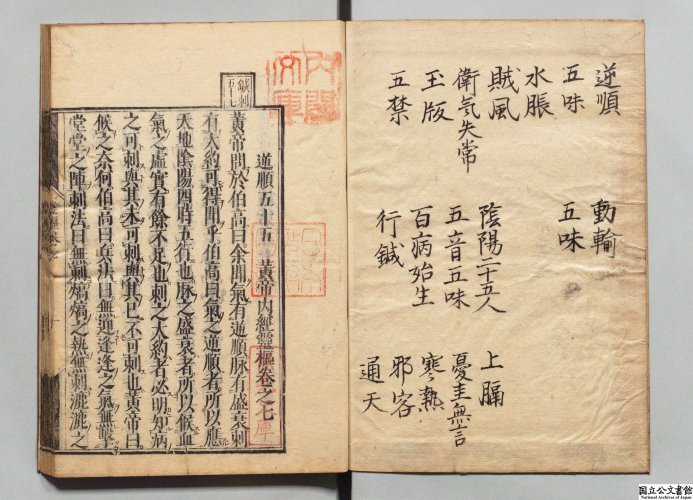 逆順 動輸
五味 五味
水脹
賊風 陰陽二十五人 上膈
衛氣失常 五音五味 憂恚無言
玉版 百病始生 寒熱
五禁 行鍼 邪客
通天
内閣文庫
鍼刺
五十七
逆順五十五 黄帝内經靈樞卷之七
黄帝問於伯高曰余聞氣有逆順脉有盛衰刺
有大約可得聞乎伯高曰氣之逆順者所以應
天地陰陽四時五行也脉之盛衰者所以候血
氣之虚實有餘不足也刺之大約者必明知病
之可刺與其未可刺與其已不可刺也黄帝曰
候之奈何伯高曰兵法曰無迎逢逢之氣無擊
堂堂之陣刺法曰無刺熇熇之熱無刺漉漉之
国立公文書館
National Archives of Japan